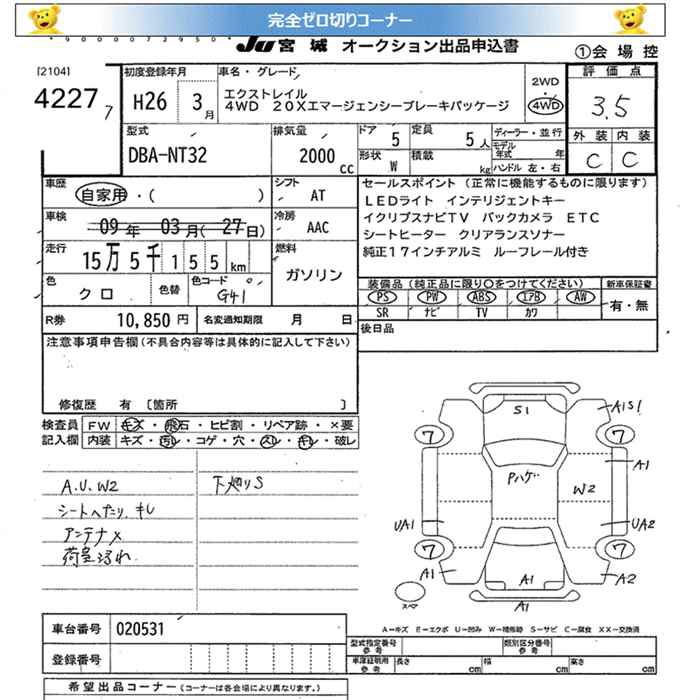 完全ゼロ切りコーナー
*9000072950*
JU 宮城 オークション出品申込書
①会場控
[2104]
4227 7
初度登録年月
H26 3月
車名・グレード
エクストレイル
4WD 20Xエマージェンシーブレーキパッケージ
2WD
・
4WD
評価点
3.5
外装 内装
C C
型式
DBA-NT32
排気量
2000 cc
ドア 5
定員 5人
形状 W
積載 kg
ディーラー・並行
モデル年式 年
ハンドル 左・右
車歴
自家用・( )
シフト AT
車検
09年 03月(27日)
冷房 AAC
走行
15万5千155km
燃料
ガソリン
色
クロ
色替
色コード
G41
R券 10,850円
名変通知期限 月 日
セールスポイント(正常に機能するものに限ります)
LEDライト インテリジェントキー
イクリプスナビTV バックカメラ ETC
シートヒーター クリアランスソナー
純正17インチアルミ ルーフレール付き
装備品(純正品に限り○をつけてください)
新車保証書
PS PW ABS エアB AW
SR ナビ TV カワ
有・無
後日品
注意事項申告欄(不具合内容等は具体的に記入して下さい)
修復歴 有 [箇所 ]
検査員記入欄
FW キズ・飛石・ヒビ割・リペア跡・×要
内装 キズ・汚レ・コゲ・穴・スレ・キレ・破レ
A.U.W2
シートへたり、キレ
アンテナ×
荷室汚れ
下廻りS
S1
A1S1
7
7
A1
Pハゲ
W2
UA1
UA2
7
7
A1
A1
A2
A1
スペア
A-キズ E-エクボ U-凹み W-補修跡 S-サビ C-腐食 XX-交換済
車台番号 020531
登録番号
型式指定番号 参考
類別区分番号 参考
車庫証明用 参考
長さ cm
幅 cm
高さ cm
希望出品コーナー(コーナーは各会場により異なります。)